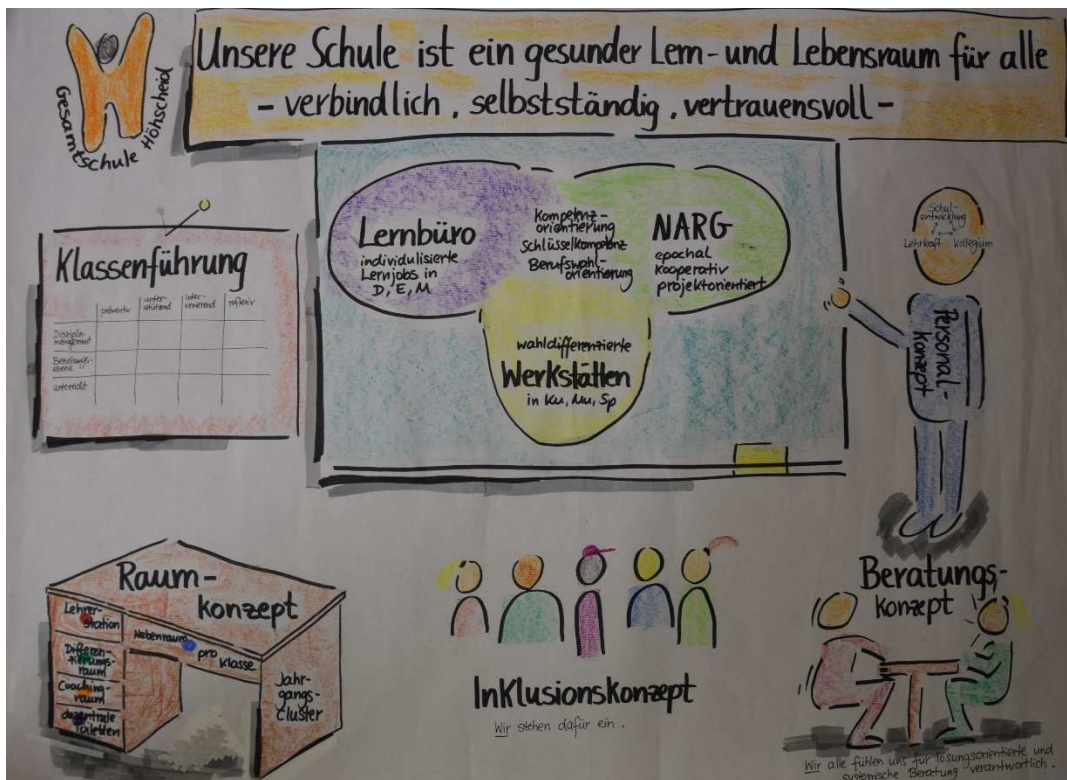 Unsere Schule ist ein gesunder Lern- und Lebensraum für alle
- verbindlich, selbstständig, vertrauensvoll -
Gesamtschule Höhscheid
Klassenführung
präventiv
unter-
stützend
inter-
venierend
reflexiv
Disziplin-
management
Beziehungs-
ebene
unterricht
Lernbüro
individulisierte
Lernjobs in
D, E, M
Kompetenz-
orientierung
Schlüsselkompetenz
Berufswahl-
orientierung
NARG
epochal
kooperativ
projektorientiert
wahldifferenzierte
Werkstätten
in Ku, Mu, Sp
Schul-
entwicklung
Lehrkraft
Kollegium
Personal-
konzept
Raum-
konzept
Lehrer-
station
Differen-
zierungs-
raum
Coaching-
raum
dezentrale
Toiletten
Nebenraum
pro
Klasse
Jahr-
gangs-
cluster
Inklusionskonzept
Wir stehen dafür ein.
Beratungs-
konzept
Wir alle fühlen uns für lösungsorientierte und
systemische Beratung verantwortlich.